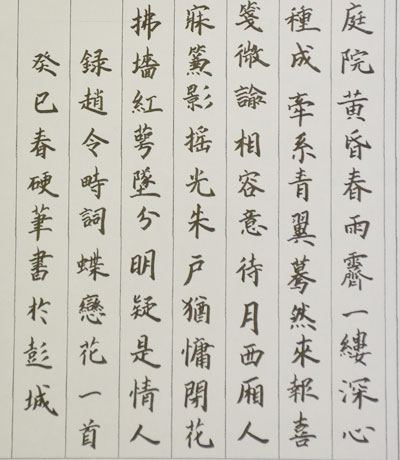 庭院黄昏春雨霽一縷深心
種成牽系青翼驀然來報喜
箋微諭相容意待月西厢人
寐簾影摇光朱户猶慵閉花
拂墻紅萼墜分明疑是情人
録趙令畤詞蝶戀花一首
癸巳春硬筆書於彭城